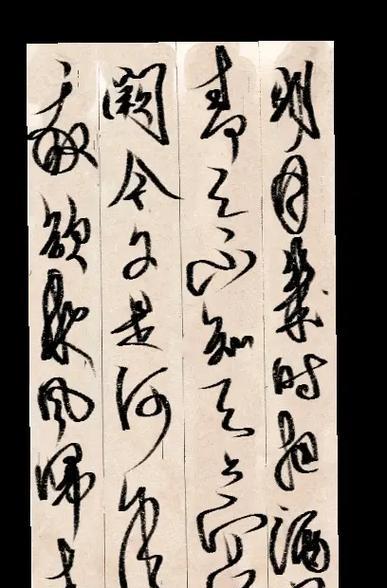 明月幾时把酒
青天不知天上宫
闕今夕是何年
我欲乘风歸去